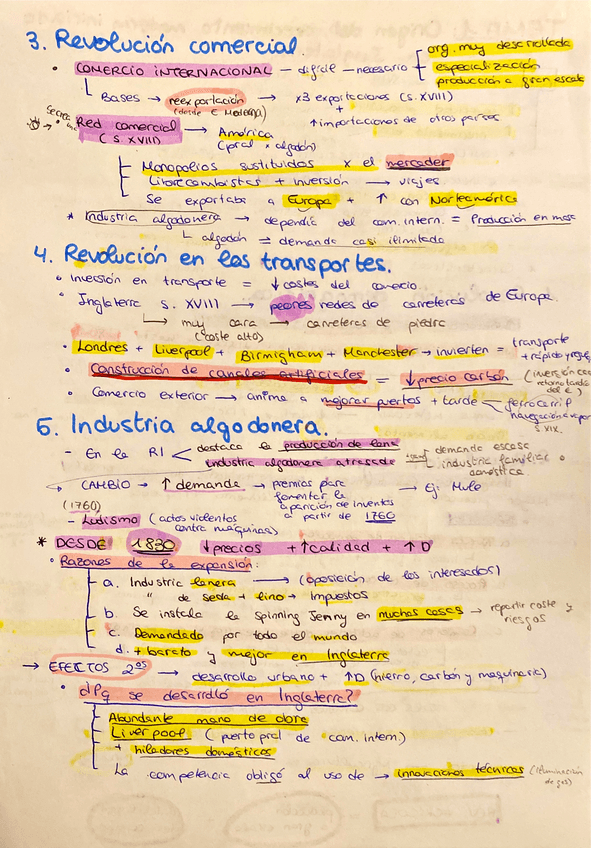 3. Revolución comercial.
• COMERCIO INTERNACIONAL — difícil — necesario
org. muy desarrollada
especialización
producción a gran escala
Bases → reexportación → x3 exportaciones (s. XVIII)
(desde E Moderna) +
↑importaciones de otros países
• Red comercial → América
(s XVIII) (pral x algodón)
Monopolios sustituidos x el mercader
Librecambistas + inversión → viajes
Se exportaba a Europa + ↑ con Norteamérica
* Industria algodonera → dependía del com. intern. = Producción en masa
algodón = demanda casi ilimitada
4. Revolución en los transportes.
• Inversión en transporte = ↓costes del comercio
• Inglaterra s. XVIII → peores redes de carreteras de Europa.
→ muy cara → carreteras de piedra
(coste alto)
• Londres + Liverpool + Birmigham + Manchester → invierten = transporte
+ rápido y
• Construcción de canales artificiales = ↓precio carbón (inversión con
del €)
• Comercio exterior → anima a mejorar puertos + tarde ferrocarril
navegación a vapor
s. XIX.
5. Industria algodonera.
- En la RI destaca la producción de lana
industria algodonera atrasada
demanda escasa
industria familiar o
doméstica
→ CAMBIO → ↑ demanda → premios para
fomentar la
aparición de inventos
a partir de 1760
→ Ej: Mule
(1760)
- Ludismo (actos violentos
contra máquinas)
* DESDE 1830 ↓precios + ↑calidad + ↑D
• Razones de la expansión:
a. Industria lanera → (oposición de los interesados)
" de seda + lino → Impuestos
b. Se instala la Spinning Jenny en muchas casas → repartir coste y
riesgos
c. Demandado por todo el mundo
d. + barato y mejor en Inglaterra
→ EFECTOS 2os → desarrollo urbano + ↑D (hierro, carbón y maquinaria)
• ¿Pq se desarrolló en Inglaterra?
Abundante mano de obra
Liverpool (puerto pral de com. intern.)
+ hiladores domésticos
La competencia obligó al uso de → innovaciones técnicas (iluminación
de gas)